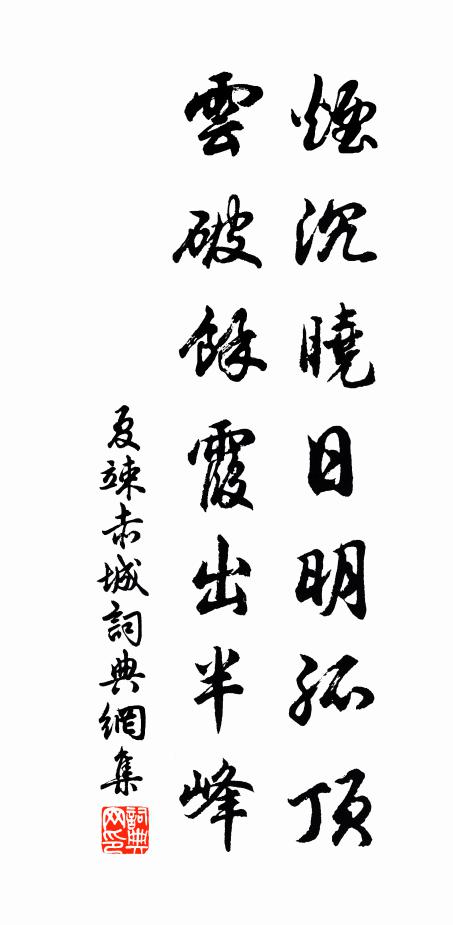 煙沉曉日明孤頂
雲破餘霞出半峰
夏竦赤城詞典網集
詞典网印